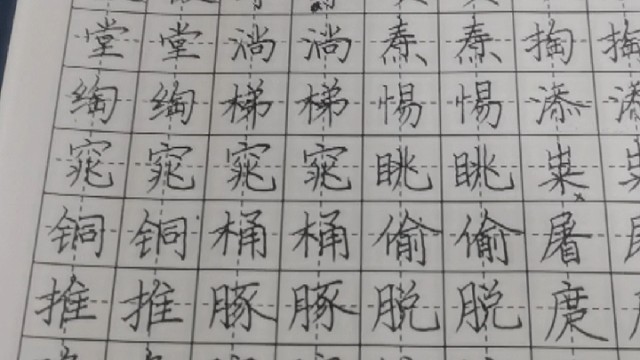 堂堂淌淌焘焘掏掏
绹绹梯梯惕惕添添
窕窕窕窕眺眺
铜铜桶桶偷偷屠
推推豚豚脱脱庹